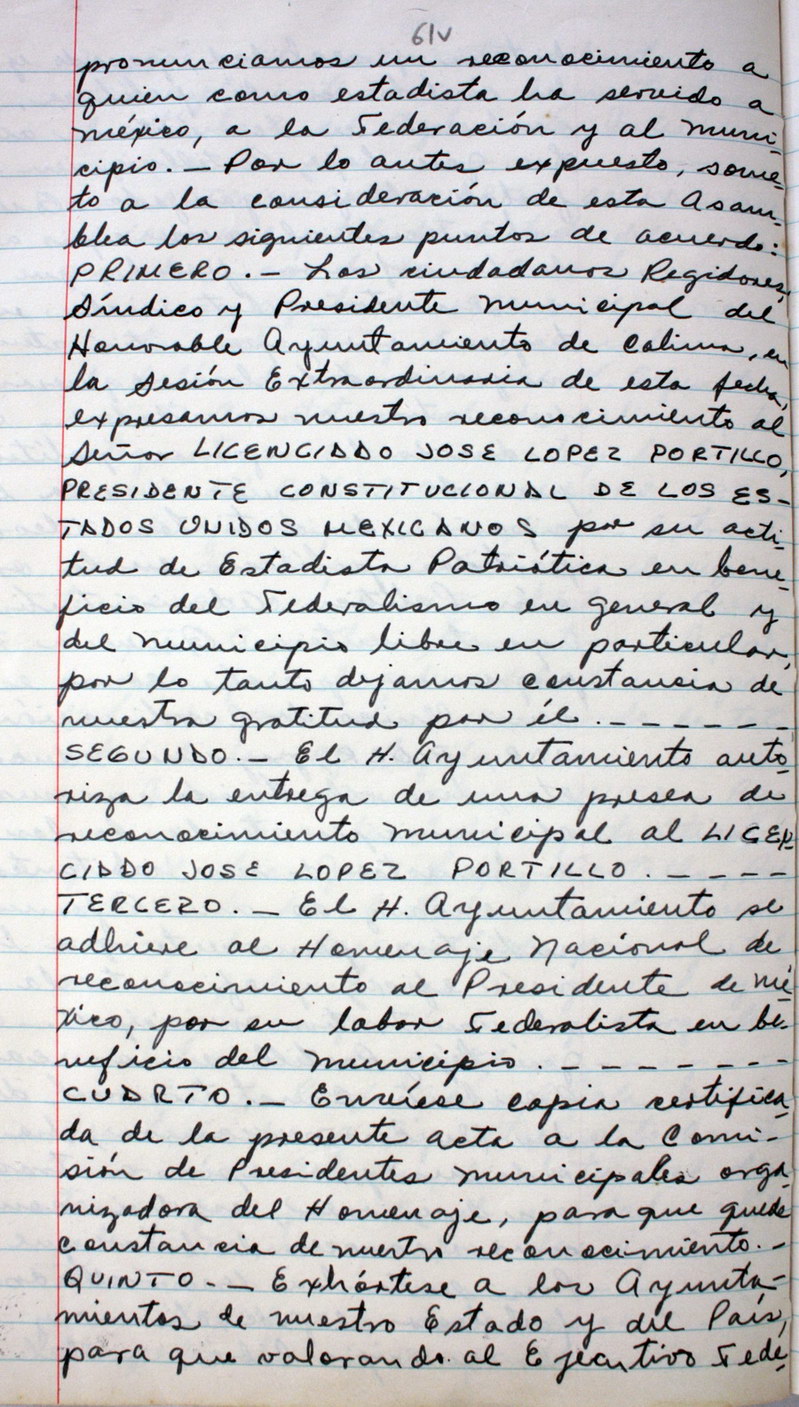 61v
pronunciamos un reconocimiento a
quien como estadista ha servido a
México, a la Federación y al Muni-
cipio.- Por lo antes expuesto, some-
to a la consideración de esta Asam-
blea los siguientes puntos de acuerdo:
PRIMERO.- Los ciudadanos Regidores,
Síndico y Presidente Municipal del
Honorable Ayuntamiento de Colima, en
la Sesión Extraordinaria de esta fecha,
expresamos nuestro reconocimiento al
Señor LICENCIADO JOSE LOPEZ PORTILLO,
PRESIDENTE CONSTITUCIONAL DE LOS ES-
TADOS UNIDOS MEXICANOS por su acti-
tud de Estadista Patriótica en bene-
ficio del Federalismo en general y
del Municipio libre en particular,
por lo tanto dejamos constancia de
nuestra gratitud por él.-------
SEGUNDO.- El H. Ayuntamiento auto-
riza la entrega de una presea de
reconocimiento Municipal al LICEN-
CIADO JOSE LOPEZ PORTILLO.----
TERCERO.- El H. Ayuntamiento se
adhiere al Homenaje Nacional de
reconocimiento al Presidente de Mé-
xico, por su labor Federalista en be-
neficio del Municipio.-------
CUARTO.- Envíese copia certifica-
da de la presente acta a la Comi-
sión de Presidentes Municipales orga-
nizadora del Homenaje, para que quede
constancia de nuestro reconocimiento.-
QUINTO.- Exhórtese a los Ayunta-
mientos de nuestro Estado y del País,
para que valorando al Ejecutivo Fede-